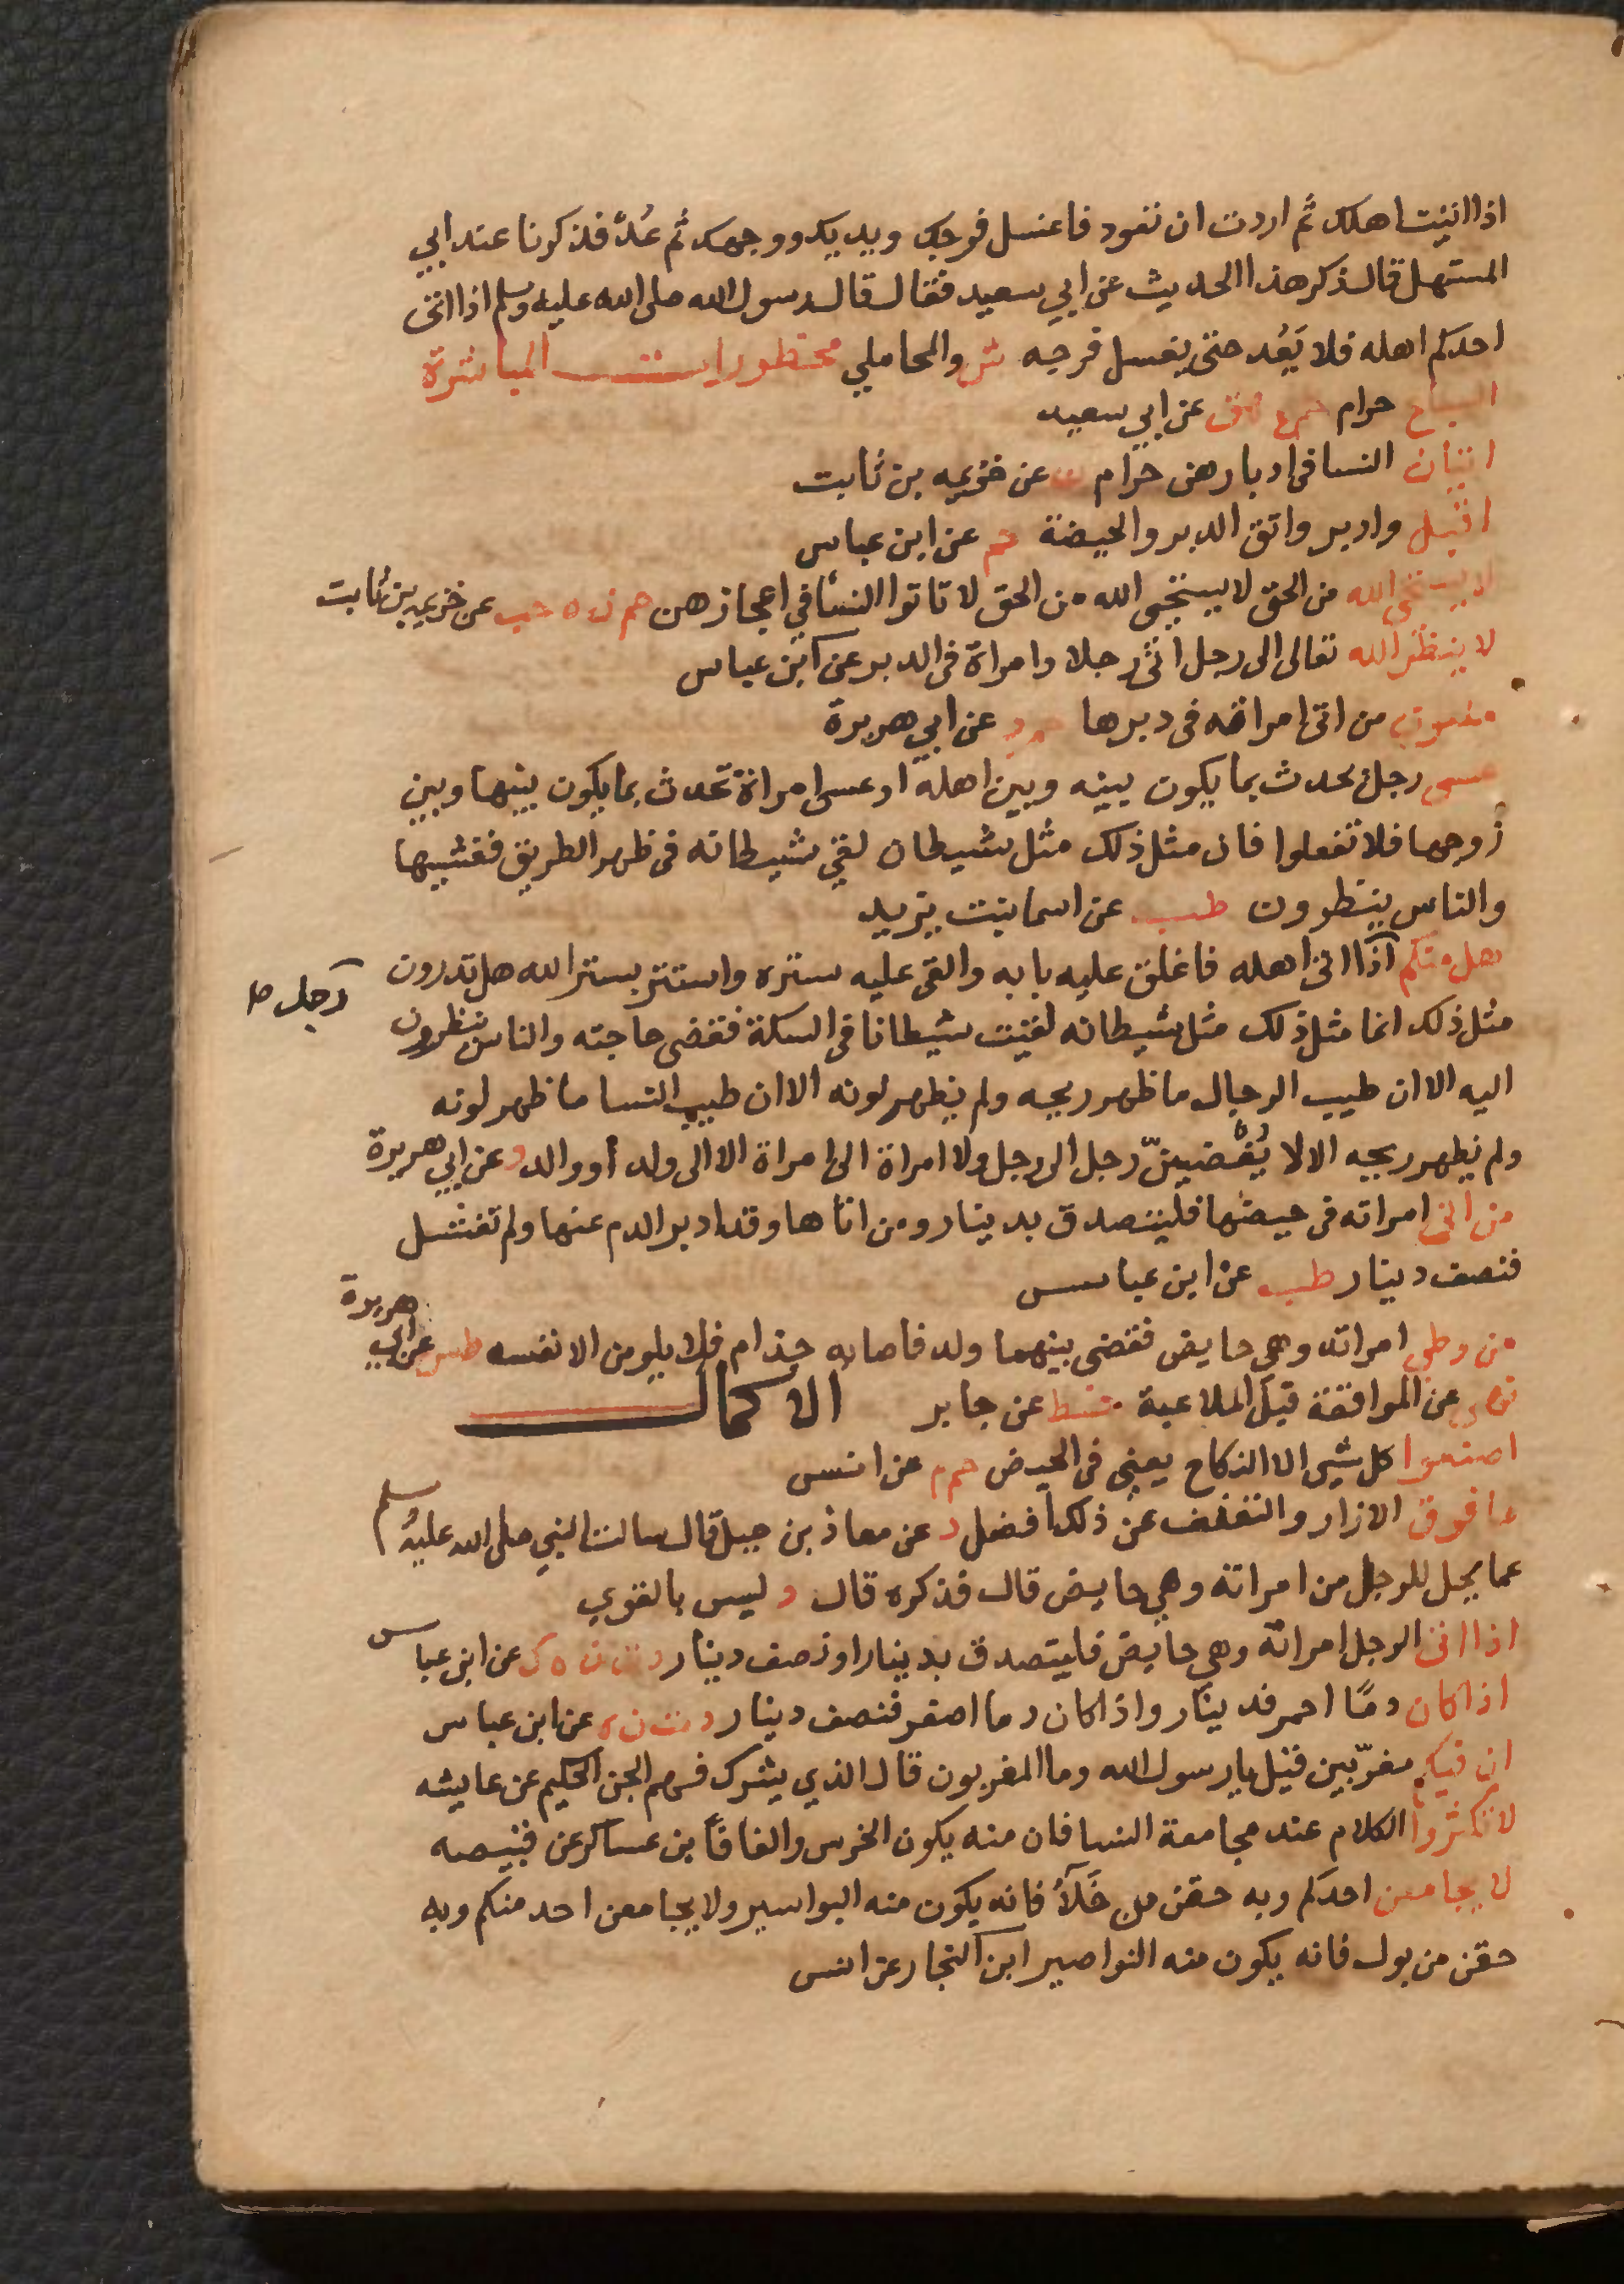 اذا اتيت اهلك ثم اردت ان تعود فاغسل فرجك ويديك ووجهك ثم عُد فذكرنا عند ابي
المستهل قال ذكر هذا الحديث عن ابي سعيد فقال قال رسول الله صلى الله عليه وسلم اذا اتى
احدكم اهله فلا يَعُد حتى يغسل فرجه ش والمحاملي محظورات المباشرة
السباع حرام حم ع هق عن ابي سعيد
اتيان النسا في ادبارهن حرام عن خزيمه بن ثابت
اقبل وادبر واتق الدبر والحيضة حم عن ابن عباس
لا يستحي الله من الحق لا يستحي الله من الحق لا تاتوا النسا في اعجازهن حم ن ه حب عن خزيمه بن ثابت
لا ينظر الله تعالى الى رجل اتى رجلا وامراة في الدبر عن ابن عباس
ملعون من اتى امراته في دبرها حم د عن ابي هريرة
عسى رجل يحدث بما يكون بينه وبين اهله او عسى امراة تحدث بما يكون بينها وبين
زوجها فلا تفعلوا فان مثل ذلك مثل شيطان لقي شيطانه في ظهر الطريق فغشيها
والناس ينظرون طب عن اسما بنت يزيد
هل منكم اذا اتى اهله فاغلق عليه بابه والقى عليه ستره واستتر بستر الله هل تدرون
رجل ص
مثل ذلك انما مثل ذلك مثل شيطانه لقيت شيطانا في السكة فقضى حاجته والناس ينظرون
اليه الا ان طيب الرجال ما ظهر ريحه ولم يظهر لونه الا ان طيب النسا ما ظهر لونه
ولم يظهر ريحه الا لا يُفضينّ رجل الى رجل ولا امراة الى امراة الا الى ولد أو والد د عن ابي هريرة
من اتى امراته في حيضها فليتصدق بدينار ومن اتاها وقد ادبر الدم عنها ولم تغتسل
فنصف دينار طب عن ابن عباس
من وطي امراته وهي حايض فقضى بينهما ولد فاصابه جذام فلا يلومن الا نفسه طس عن ابي هريرة
نهى عن المواقعة قبل الملاعبة خط عن جابر الاكمال
اصنعوا كل شي الا النكاح يعني في الحيض حم م عن انس
ما فوق الازار والتعفف عن ذلك أفضل د عن معاذ بن جبل قال سالت النبي صلى الله عليه وسلم
عما يحل للرجل من امراته وهي حايض قال فذكره قال د ليس بالقوي
اذا اتى الرجل امراته وهي حايض فليتصدق بدينار او نصف دينار د ت ن ه ك عن ابن عباس
اذا كان دمًا احمر فدينار واذا كان دما اصفر فنصف دينار د ت ن ه عن ابن عباس
ان فيكم مغرّبين قيل يا رسول الله وما المغربون قال الذي يشرك فيهم الجن الحكيم عن عايشه
لا تكثروا الكلام عند مجامعة النسا فان منه يكون الخرس والفافأ ابن عساكر عن قبيصه
لا يجامعن احدكم وبه حقن من خَلَاءُ فانه يكون منه البواسير ولا يجامعن احد منكم وبه
حقن من بول فانه يكون منه النواصير ابن النجار عن انس